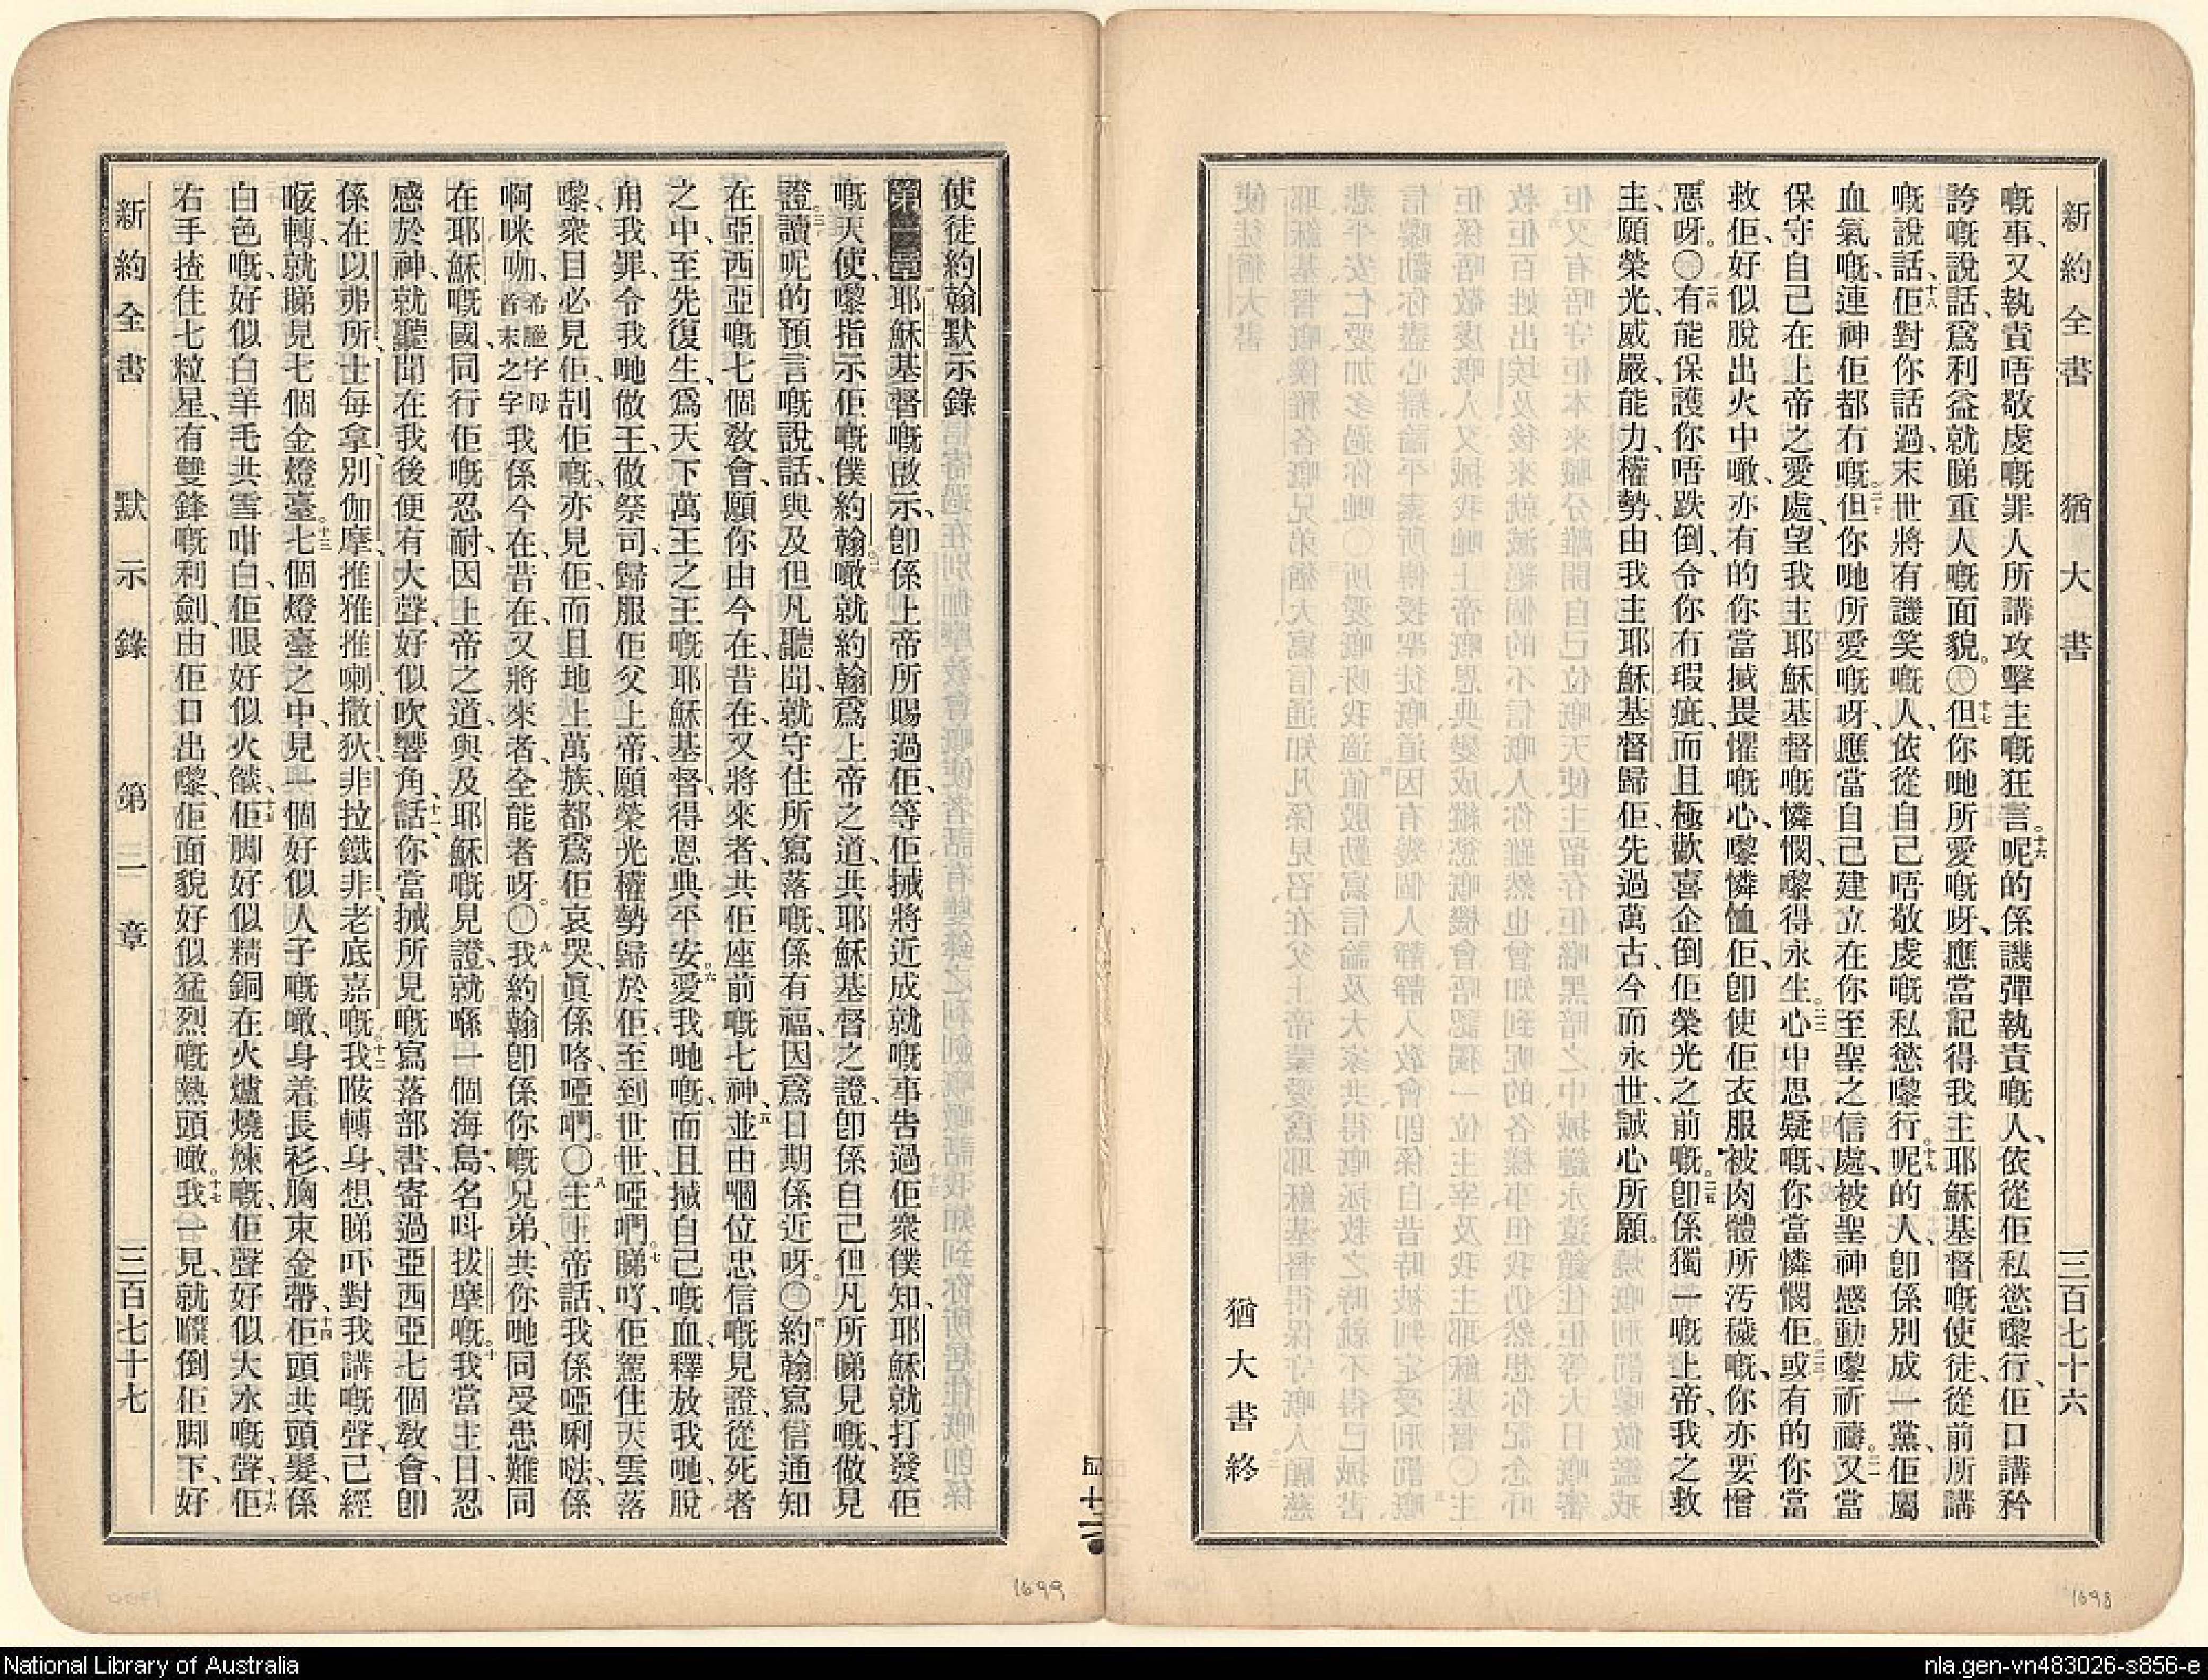 新約全書 猶大書 三百七十六
嘅事、又執責唔敬虔嘅罪人所講攻擊主嘅狂言。十六呢的係譏彈執責嘅人、依從佢私慾嚟行、佢口講矜
誇嘅說話、爲利益就睇重人嘅面貌。〇十七但你哋所愛嘅呀、應當記得我主耶穌基督嘅使徒、從前所講
嘅說話、十八佢對你話過、末世將有譏笑嘅人、依從自己唔敬虔嘅私慾嚟行。十九呢的人、卽係別成一黨、佢屬
血氣嘅、連神佢都冇嘅。二十但你哋所愛嘅呀、應當自己建立在你至聖之信處、被聖神感動嚟祈禱。二一又當
保守自己在上帝之愛處、望我主耶穌基督嘅憐憫、嚟得永生。二二心中思疑嘅、你當憐憫佢。二三或有的你當
救佢、好似脫出火中噉、亦有的你當搣畏懼嘅心、嚟憐恤佢、卽使佢衣服被肉體所汚穢嘅、你亦要憎
惡呀。〇二四有能保護你唔跌倒、令你冇瑕疵、而且極歡喜企倒佢榮光之前嘅。二五卽係獨一嘅上帝、我之救
主、願榮光、威嚴、能力、權勢、由我主耶穌基督歸佢、先過萬古、今而永世、誠心所願。
猶大書終
使徒約翰默示錄
第一章 一耶穌基督嘅啟示、卽係上帝所賜過佢、等佢搣將近成就嘅事告過佢衆僕知、耶穌就打發佢
嘅天使、嚟指示佢嘅僕約翰。二噉就約翰爲上帝之道、共耶穌基督之證、卽係自己但凡所睇見嘅、做見
證。三讀呢的預言嘅說話、與及但凡聽聞、就守住所寫落嘅、係有福、因爲日期係近呀。〇四約翰寫信通知
在亞西亞嘅七個敎會、願你由今在、昔在、又將來者、共佢座前嘅七神、五並由嗰位忠信嘅見證、從死者
之中、至先復生、爲天下萬王之王嘅耶穌基督、得恩典平安。六愛我哋嘅、而且搣自己嘅血、釋放我哋、脫
甪我罪、令我哋做王、做祭司、歸服佢父上帝、願榮光權勢歸於佢、至到世世、啞們。七睇吖、佢駕住天雲落
嚟、衆目必見佢、𠞩佢嘅、亦見佢、而且地上萬族、都爲佢哀哭、眞係咯、啞們。〇八主上帝話、我係啞唎㗭、係
啊咪咖、希臘字母首末之字我係今在、昔在、又將來者、全能者呀。〇九我約翰卽係你嘅兄弟、共你哋同受患難、同
在耶穌嘅國、同行佢嘅忍耐、因上帝之道、與及耶穌嘅見證、就喺一個海島、名呌拔摩嘅。十我當主日、忽
感於神、就聽聞在我後便有大聲、好似吹響角、十一話、你當搣所見嘅寫落部書、寄過亞西亞七個敎會、卽
係在以弗所、士每拿、別伽摩、推雅推喇、撒狄、非拉鐵非、老底嘉嘅。十二我㨆轉身、想睇吓對我講嘅聲、已經
㨆轉、就睇見七個金燈臺。十三七個燈臺之中、見一個好似人子嘅噉、身着長衫、胸束金帶、十四佢頭共頭髮、係
白色嘅、好似白羊毛共雪咁白、佢眼好似火燄、十五佢脚好似精銅在火爐燒煉嘅、佢聲好似大水嘅聲、十六佢
右手揸住七粒星、有雙鋒嘅利劍、由佢口出嚟、佢面貌好似猛烈嘅熱頭噉。十七我一見、就㒒倒佢脚下、好
新約全書 默示錄 第一章 三百七十七
1699
1698
National Library of Australia
nla.gen-vn483026-s856-e